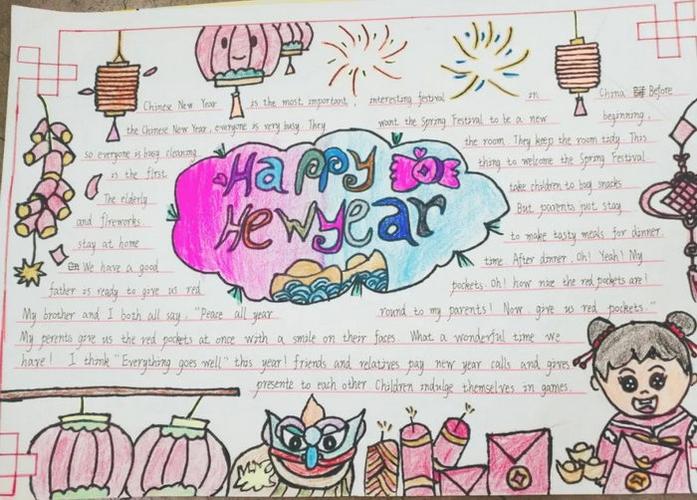 Chinese New Year is the most important, interesting festival in China Before
the Chinese New Year, everyone is very busy. They want the Spring Festival to be a new beginning,
so everyone is busy cleaning the room. They keep the room tidy. This
is the first thing to welcome the Spring Festival.
The elderly take children to buy snacks
and fireworks But parents just stay
stay at home to make tasty meals for dinner.
We have a good time. After dinner, Oh! Yeah! My
father is ready to give us red pockets. Oh! how nice the red pockets are!
Happy
Hewyear
My brother and I both all say, "Peace all year round to my parents! Now, give us red pockets."
My perents give us the red pockets at once with a smile on their faces. What a wonderful time we
have! I think "Everything goes well" this year! friends and relatives pay new year calls and gives
presente to each other Children indulge themselves in games.